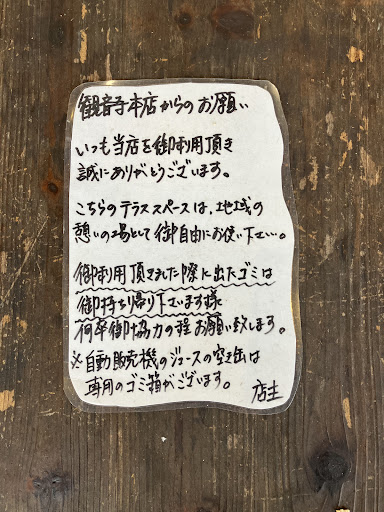 観音寺本店からのお願い
いつも当店を御利用頂き
誠にありがとうございます。
こちらのテラススペースは、地域の
憩いの場として御自由にお使い下さい。
御利用頂きました際に出たゴミは
御持ち帰り下さいます様
何卒御協力の程お願い致します。
※自動販売機のジュースの空き缶は
専用のゴミ箱がございます。
店主